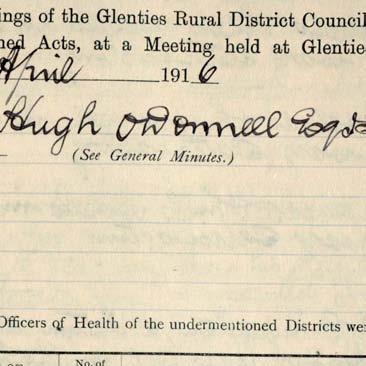 ings of the Glenties Rural District Council
ned Acts, at a Meeting held at Glentie
April 1916
Hugh O'Donnell Esqr
(See General Minutes.)
Officers of Health of the undermentioned Districts wer
No. of